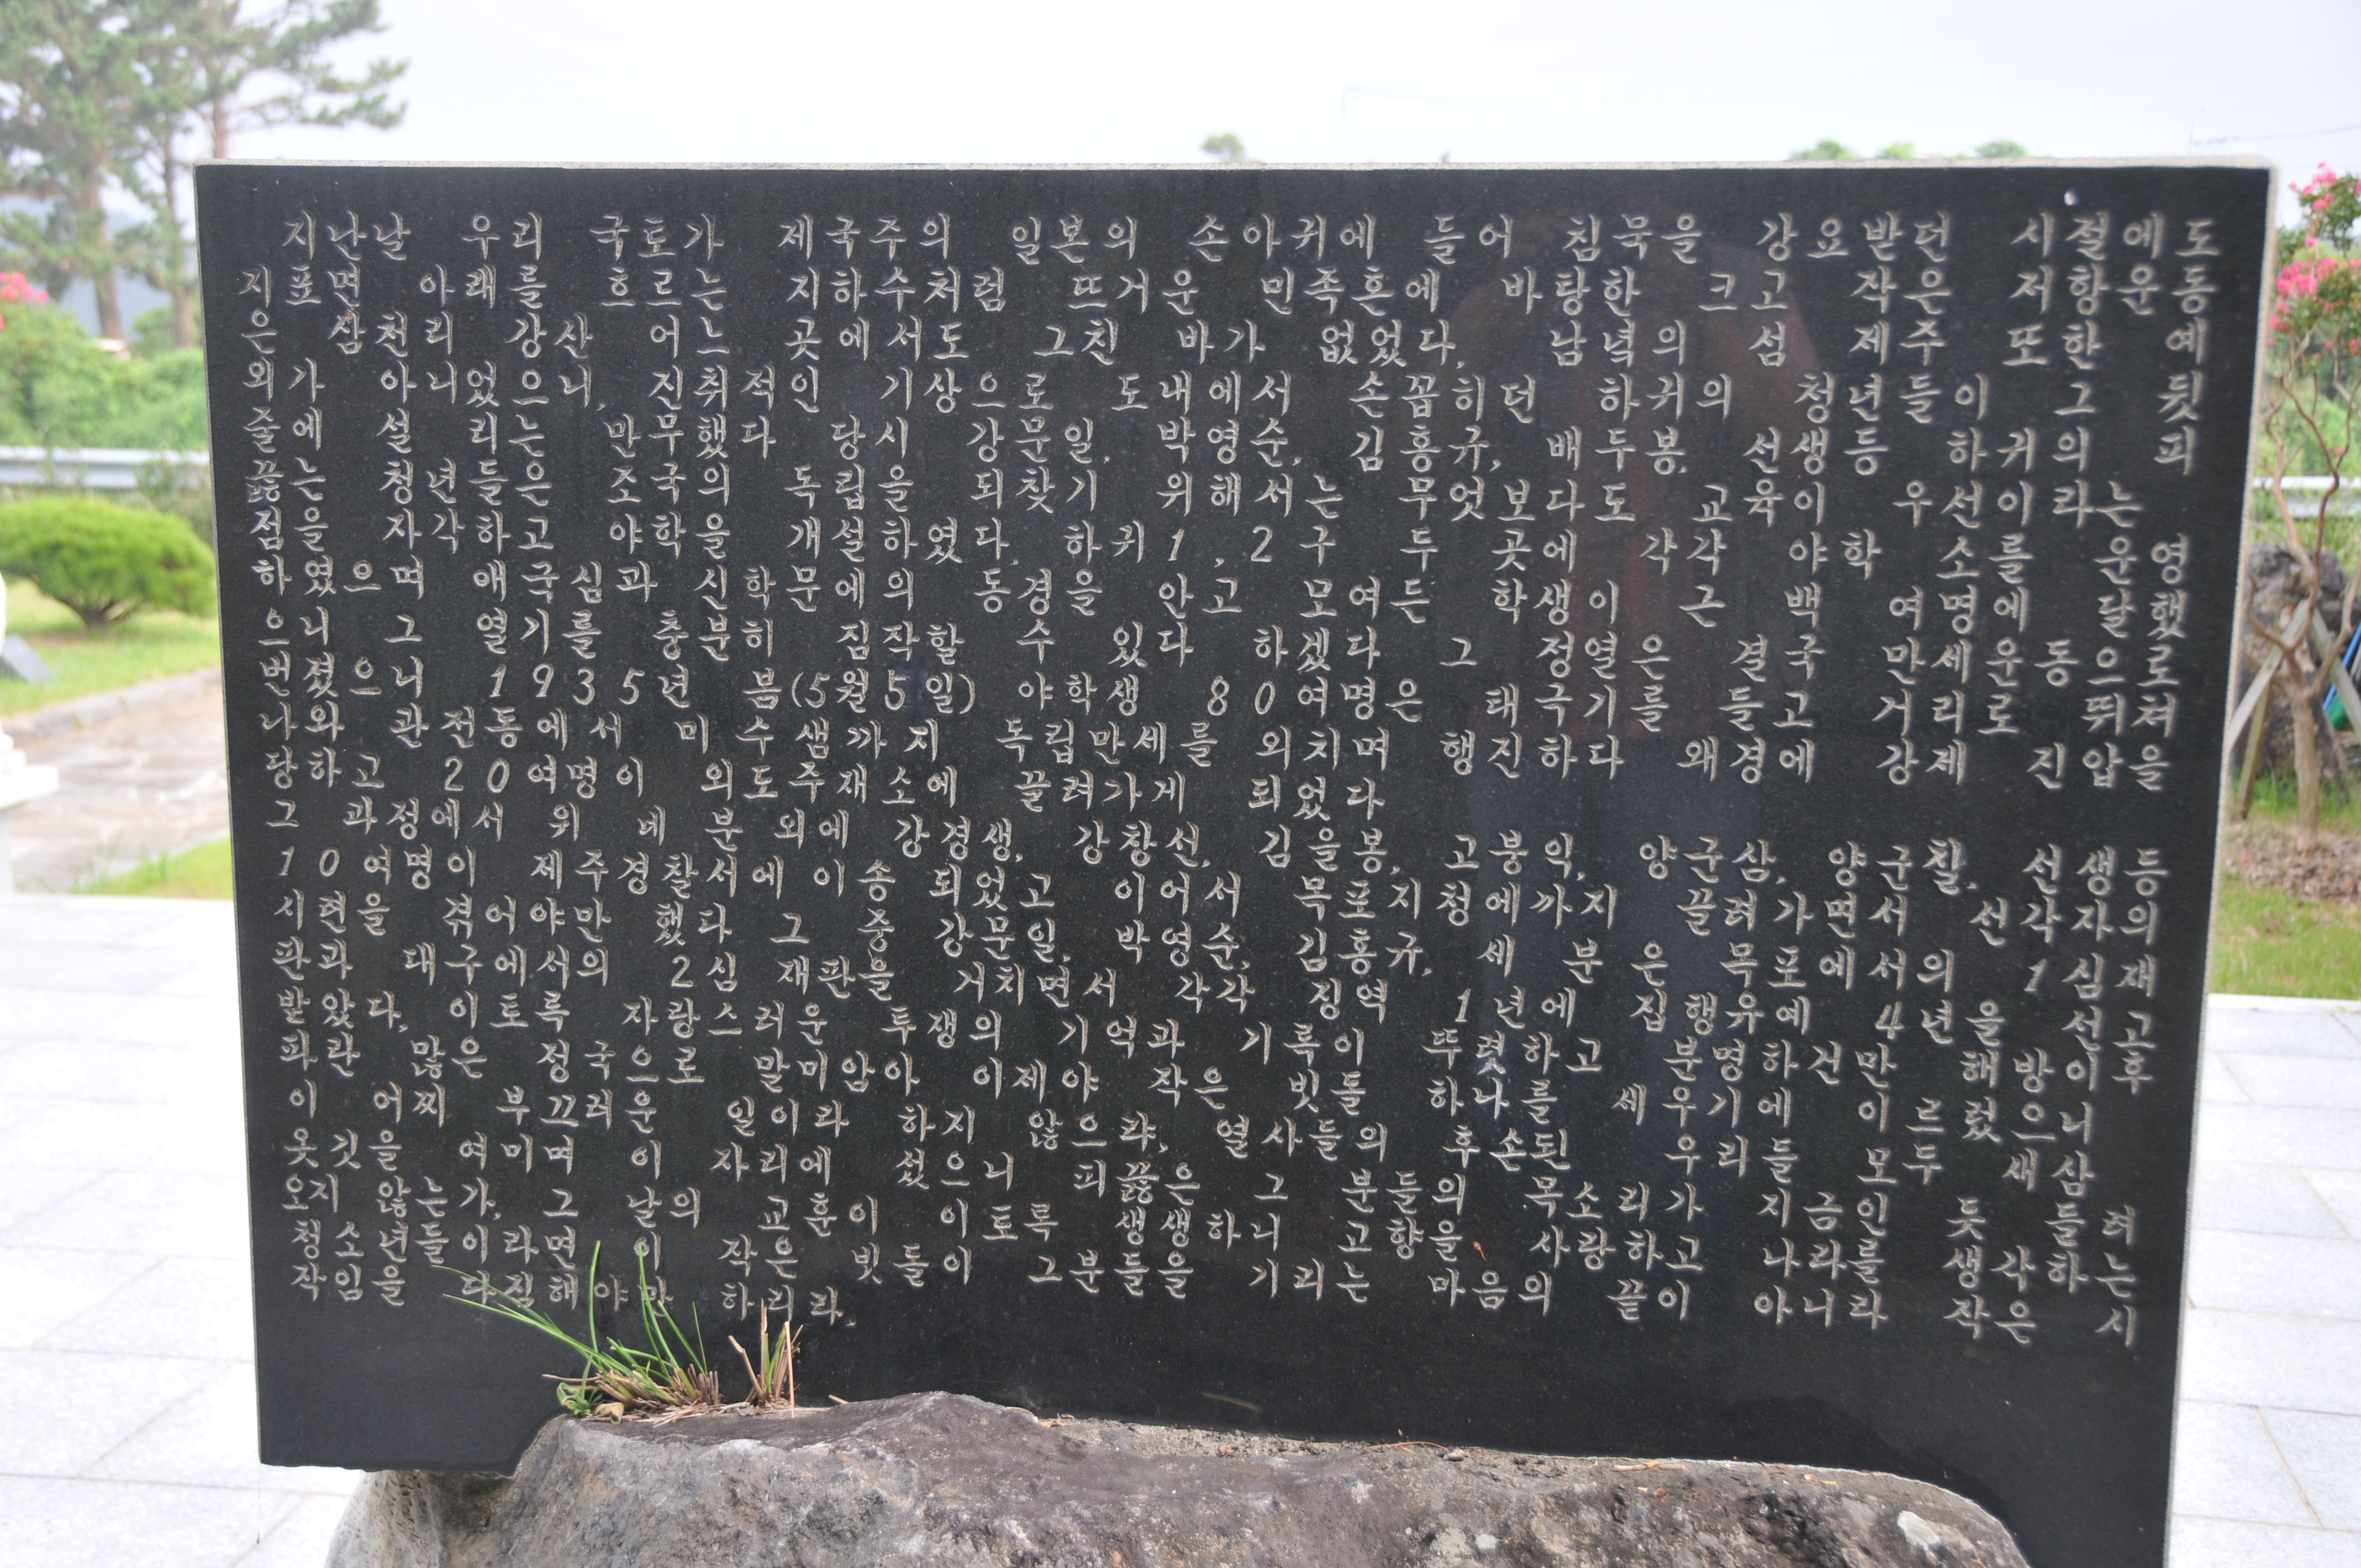 지난날 우리 국토가 제국주의 일본의 손아귀에 들어 침묵을 강요받던 시절에도
지표면 아래를 흐르는 지하수처럼 뜨거운 민족혼에 바탕한 크고 작은 저항운동
은 삼천리 강산 어느 곳에서도 그친 바가 없었다. 남녘의 섬 제주 또한 예
외가 아니었으니, 진취적인 기상으로 도내에서 손꼽히던 하귀의 청년들이 그 뒷
줄에 설리는 만무했다 당시 강문일, 박영순, 김홍규, 배두봉. 선생등 하귀의 피
끓는 청년들은 조국의 독립을 되찾기 위해서는 무엇보다도 교육이 우선이라는
점을 자각하고 야학을 개설하였다. 하귀 1,2구 두곳에 각각 야학소를 운영
하였으며 애국심과 신학문에의 동경을 안고 모여든 학생이 근 백여명에 달했
으니 그 열기를 충분히 짐작할 수 있다 하겠다 그 정열은 결국 만세운동으로
번졌으니 1935년 봄(5월5일) 야학생 80여명은 태극기를 들고 거리로 뛰쳐
나와 관전동에서 미수샘까지 독립만세를 외치며 행진하다 왜경에 강제 진압을
당하고 20여명이 외도주재소에 끌려가게 되었다
그 과정에서 위 네분 외에 강경생, 강창선, 김을봉, 고붕익, 양군삼, 양군찰, 선생등
10여명이 제주경찰서에 이송되었고 이어서 목포지청에까지 끌려가면서 선각자의
시련을 겪어야만 했다 그중 강문일, 박영순, 김홍규, 세분은 목포에서의 1심재
판과 대구에서의 2심 재판을 거치면서 각각 징역 1년에 집행유예 4년을 선고
받았다, 이토록 자랑스러운 투쟁의 기억과 기록이 뚜렷하고 분명하건만 해방이후
파란 많은 정국으로 말미암아 이제야 작은 빗돌 하나를 세우기에 이르렀으니
이 어찌 부끄러운 일이라 하지 않으랴, 열사들의 후손된 우리들 모두 새삼
옷깃을 여미며 이 자리에 섰으니 피끓은 그분들의 목소리가 지금인듯 들려
오지 않는가, 그날의 교훈이 이토록 생생하니 고향을 사랑하고 나라를 생각하는
청소년들이라면 이 작은 빗돌이 그분들을 기리는 마음의 끝이 아니라 작은 시
작임을 다짐해야만 하리라.